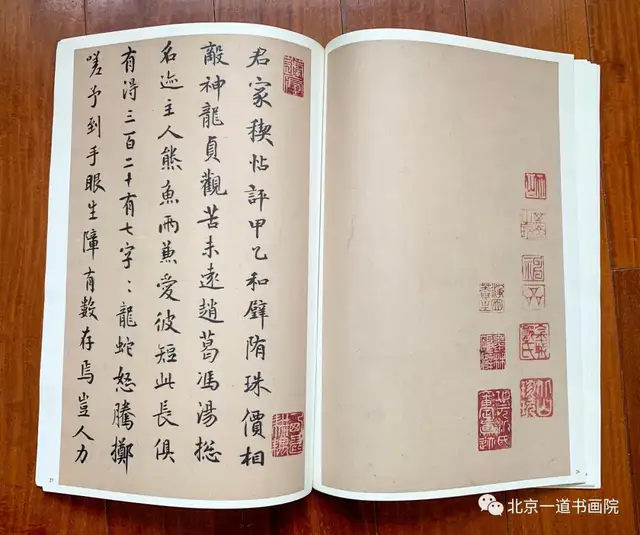 君家稧帖評甲乙和璧隋珠價相
敵神龍貞觀苦未遠趙葛馮湯總
名迹主人熊魚兩兼愛彼短此長俱
有得三百二十有七字〻龍蛇怒騰擲
嗟予到手眼生障有數存焉豈人力
北京一道书画院